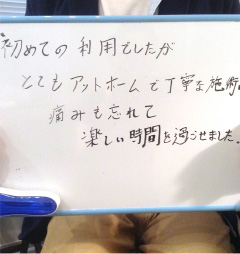 初めての利用でしたが
とてもアットホームで丁寧な施術
痛みも忘れて
楽しい時間を過ごせました。